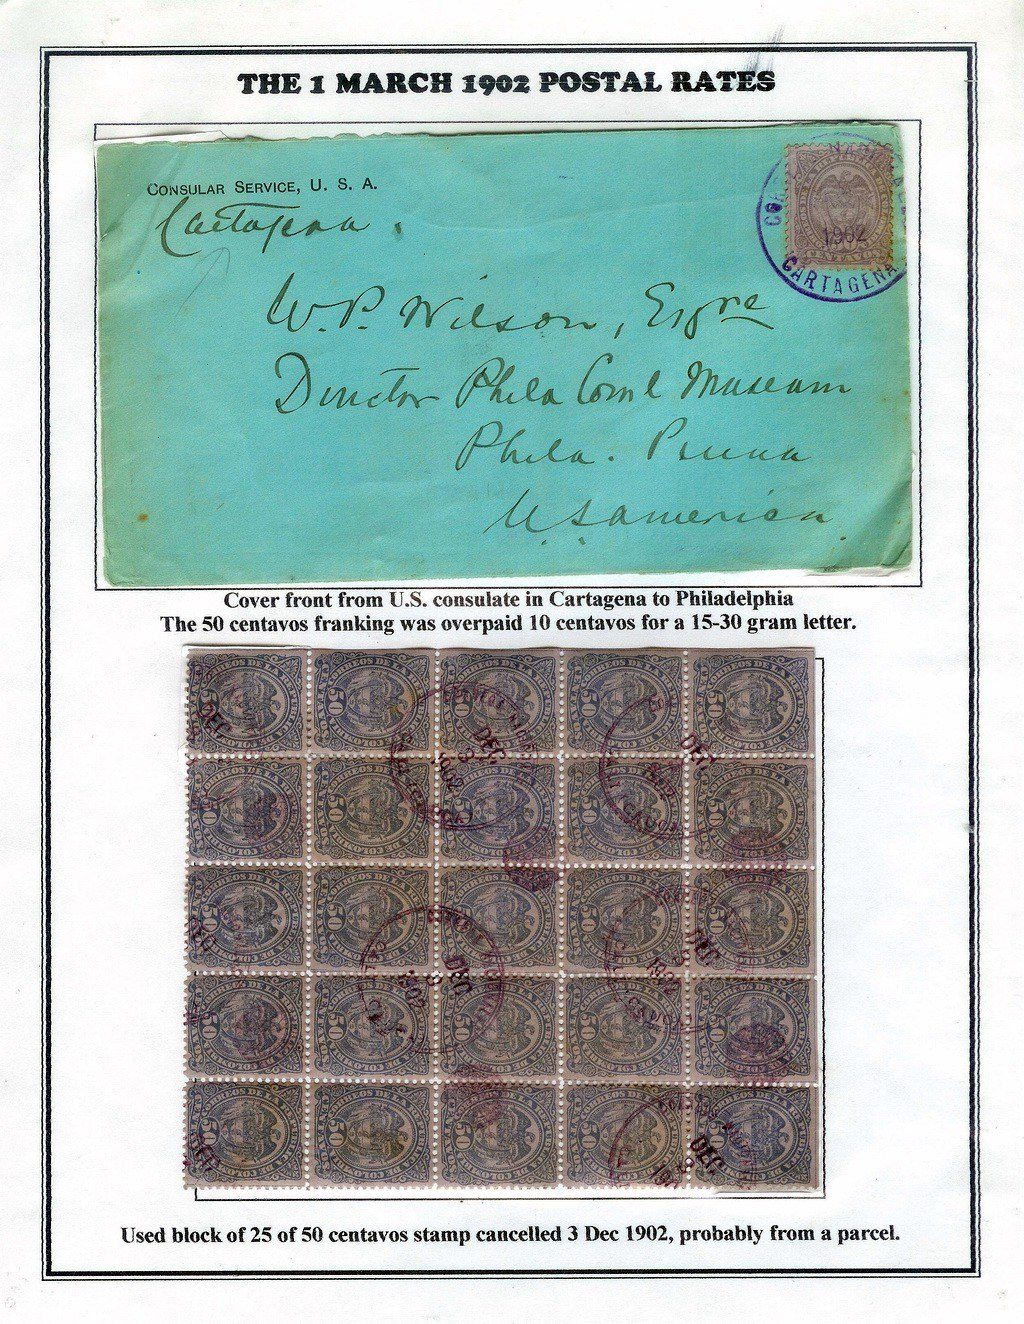 THE 1 MARCH 1902 POSTAL RATES
CONSULAR SERVICE, U. S. A.
Cartagena.
1902
CARTAGENA
W. P. Wilson, Esqre
Director Phila Coml Museum
Phila. Penna
U.S. America
Cover front from U.S. consulate in Cartagena to Philadelphia
The 50 centavos franking was overpaid 10 centavos for a 15-30 gram letter.
CORREOS DE LA
50
DEC
3
1902
Used block of 25 of 50 centavos stamp cancelled 3 Dec 1902, probably from a parcel.